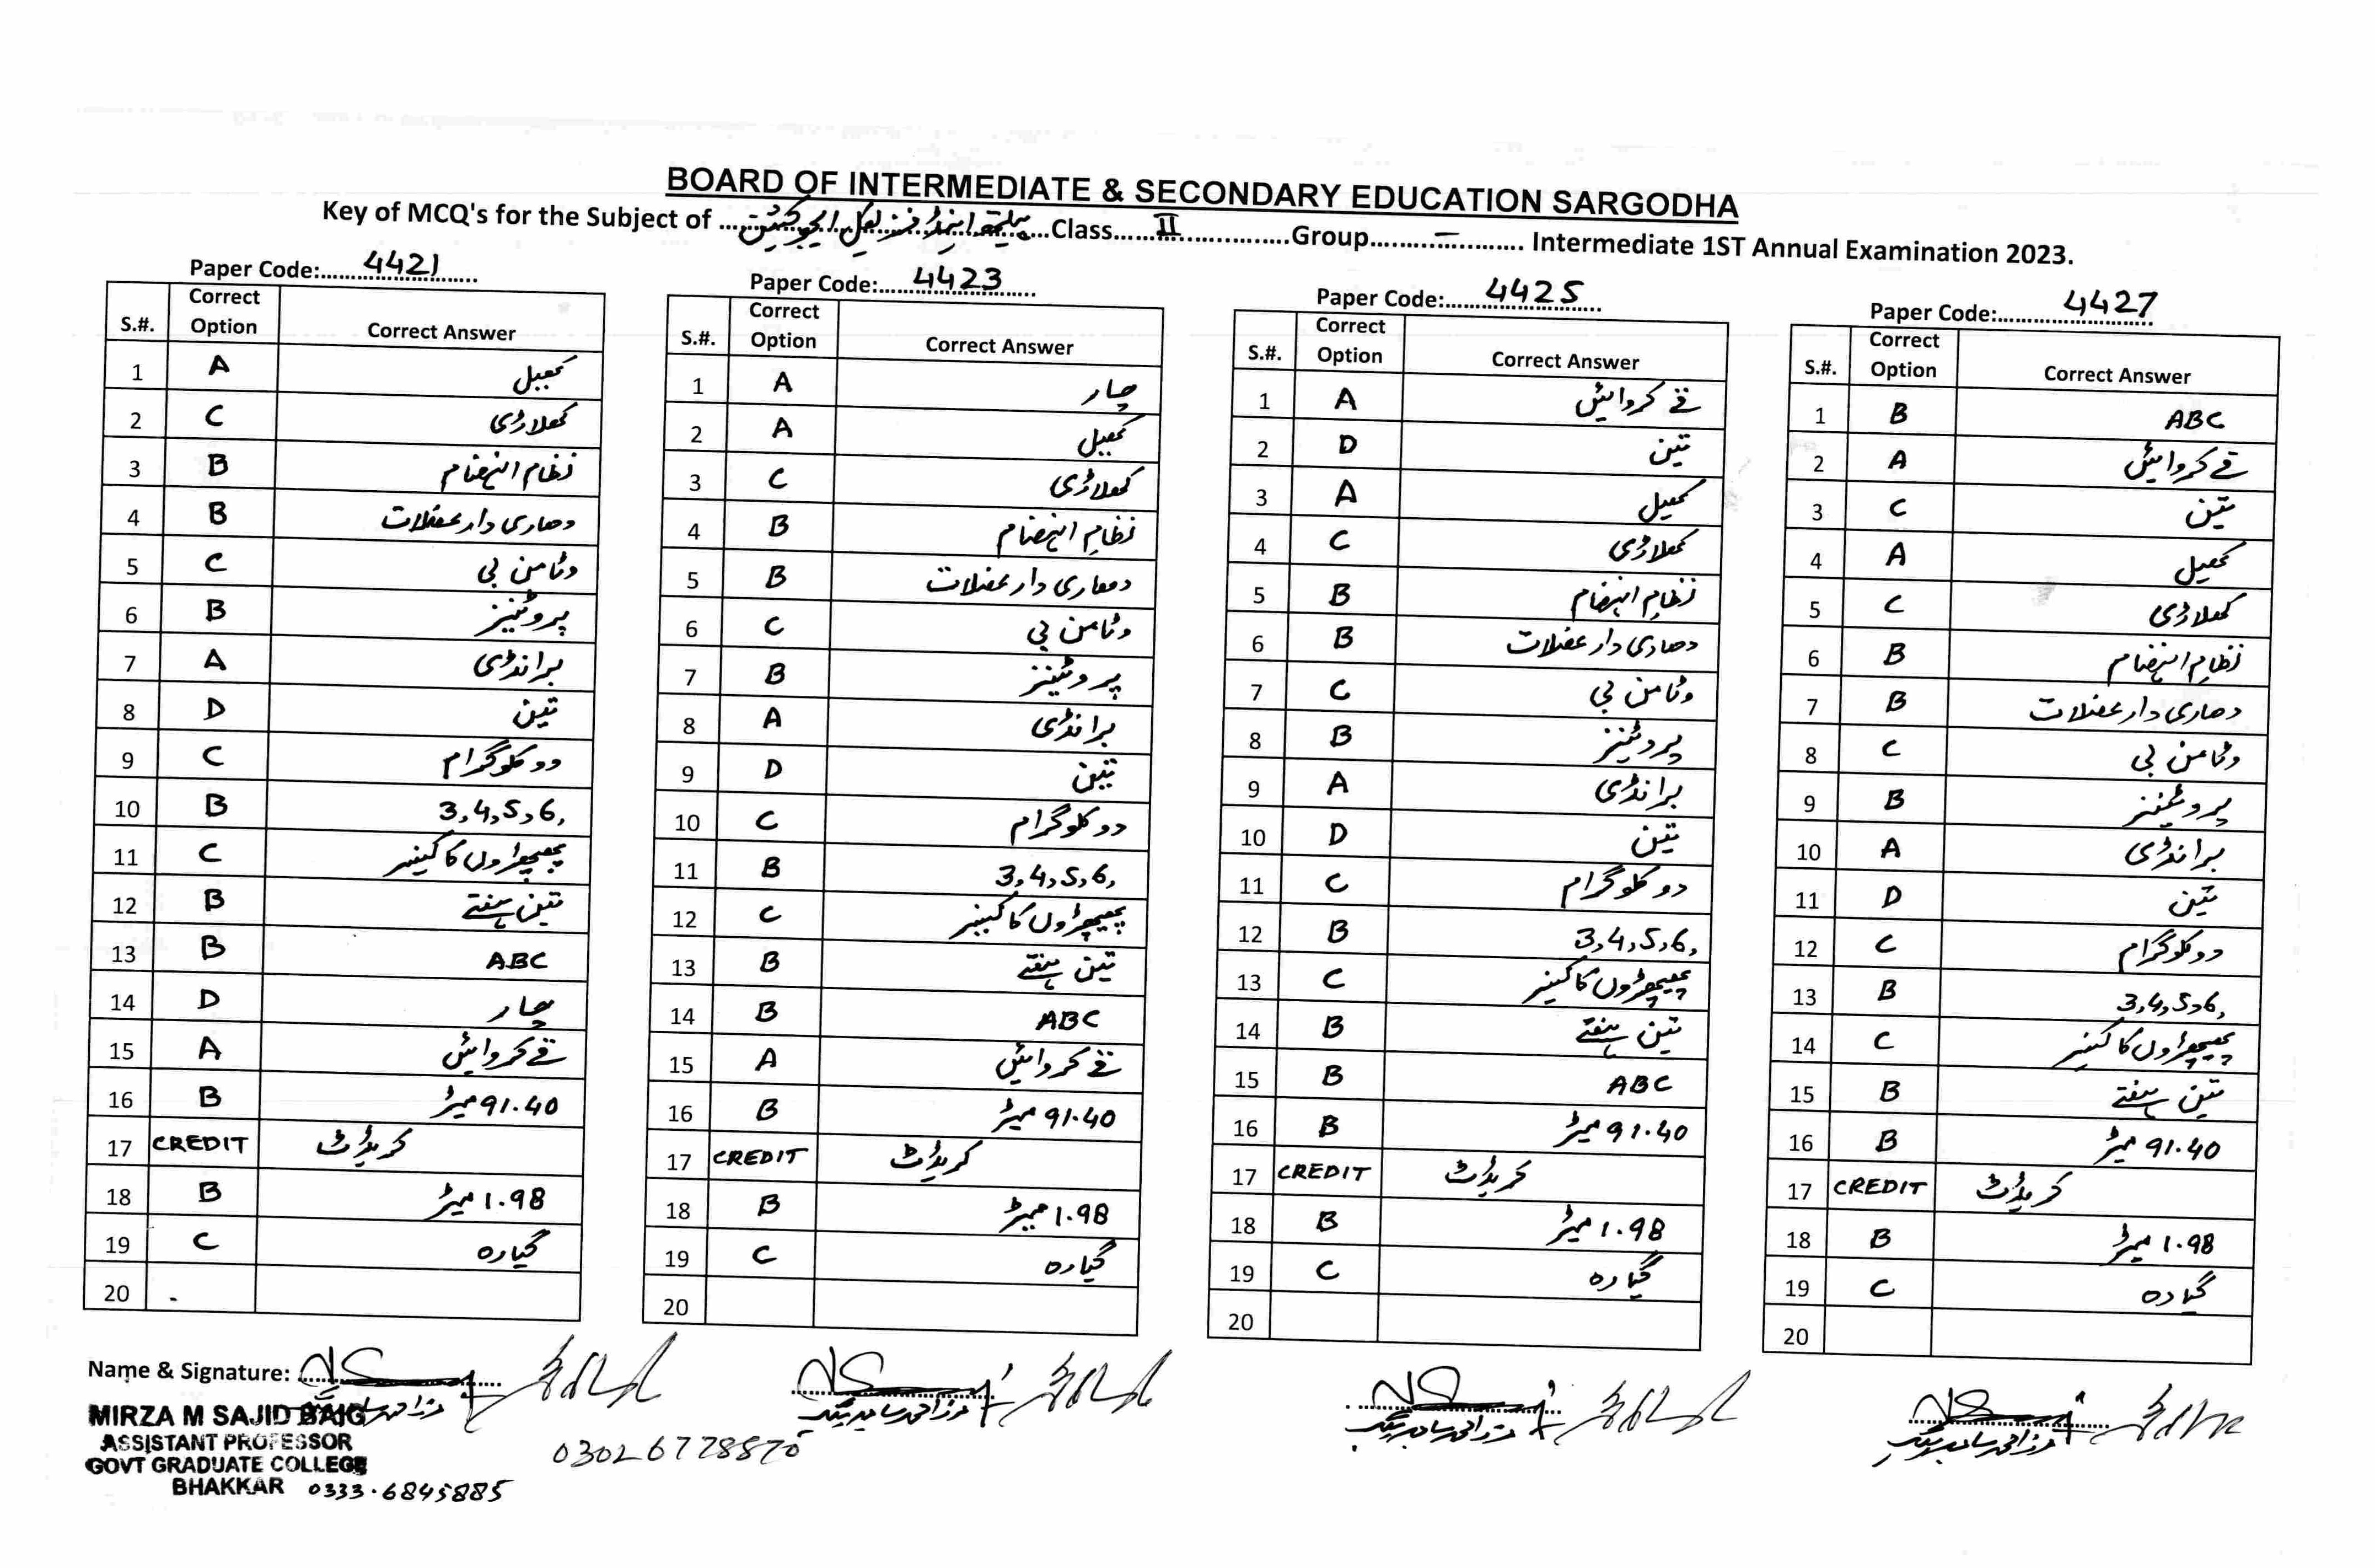 BOARD OF INTERMEDIATE & SECONDARY EDUCATION SARGODHA
Key of MCQ's for the Subject of ہیلتھ اینڈ فزیکل ایجوکیشن Class II Group – Intermediate 1ST Annual Examination 2023.
Paper Code: 4421
S.#. Correct Option Correct Answer
1 A کھیل
2 C کھلاڑی
3 B نظام انہضام
4 B دھاری دار عضلات
5 C وٹامن بی
6 B پروٹینز
7 A برانڈی
8 D تین
9 C دو کلوگرام
10 B 3,4,5,6,
11 C پھیپھڑوں کا کینسر
12 B تین ہفتے
13 B ABC
14 D چار
15 A قے کروائیں
16 B 91.40 میٹر
17 CREDIT کریڈٹ
18 B 1.98 میٹر
19 C گیارہ
20 .
Paper Code: 4423
S.#. Correct Option Correct Answer
1 A چار
2 A کھیل
3 C کھلاڑی
4 B نظام انہضام
5 B دھاری دار عضلات
6 C وٹامن بی
7 B پروٹینز
8 A برانڈی
9 D تین
10 C دو کلوگرام
11 B 3,4,5,6,
12 C پھیپھڑوں کا کینسر
13 B تین ہفتے
14 B ABC
15 A قے کروائیں
16 B 91.40 میٹر
17 CREDIT کریڈٹ
18 B 1.98 میٹر
19 C گیارہ
20
Paper Code: 4425
S.#. Correct Option Correct Answer
1 A قے کروائیں
2 D تین
3 A کھیل
4 C کھلاڑی
5 B نظام انہضام
6 B دھاری دار عضلات
7 C وٹامن بی
8 B پروٹینز
9 A برانڈی
10 D تین
11 C دو کلوگرام
12 B 3,4,5,6,
13 C پھیپھڑوں کا کینسر
14 B تین ہفتے
15 B ABC
16 B 91.40 میٹر
17 CREDIT کریڈٹ
18 B 1.98 میٹر
19 C گیارہ
20
Paper Code: 4427
S.#. Correct Option Correct Answer
1 B ABC
2 A قے کروائیں
3 C تین
4 A کھیل
5 C کھلاڑی
6 B نظام انہضام
7 B دھاری دار عضلات
8 C وٹامن بی
9 B پروٹینز
10 A برانڈی
11 D تین
12 C دو کلوگرام
13 B 3,4,5,6,
14 C پھیپھڑوں کا کینسر
15 B تین ہفتے
16 B 91.40 میٹر
17 CREDIT کریڈٹ
18 B 1.98 میٹر
19 C گیارہ
20
Name & Signature:
MIRZA M SAJID BAIG
ASSISTANT PROFESSOR
GOVT GRADUATE COLLEGE
BHAKKAR 0333.6845885
03026778570